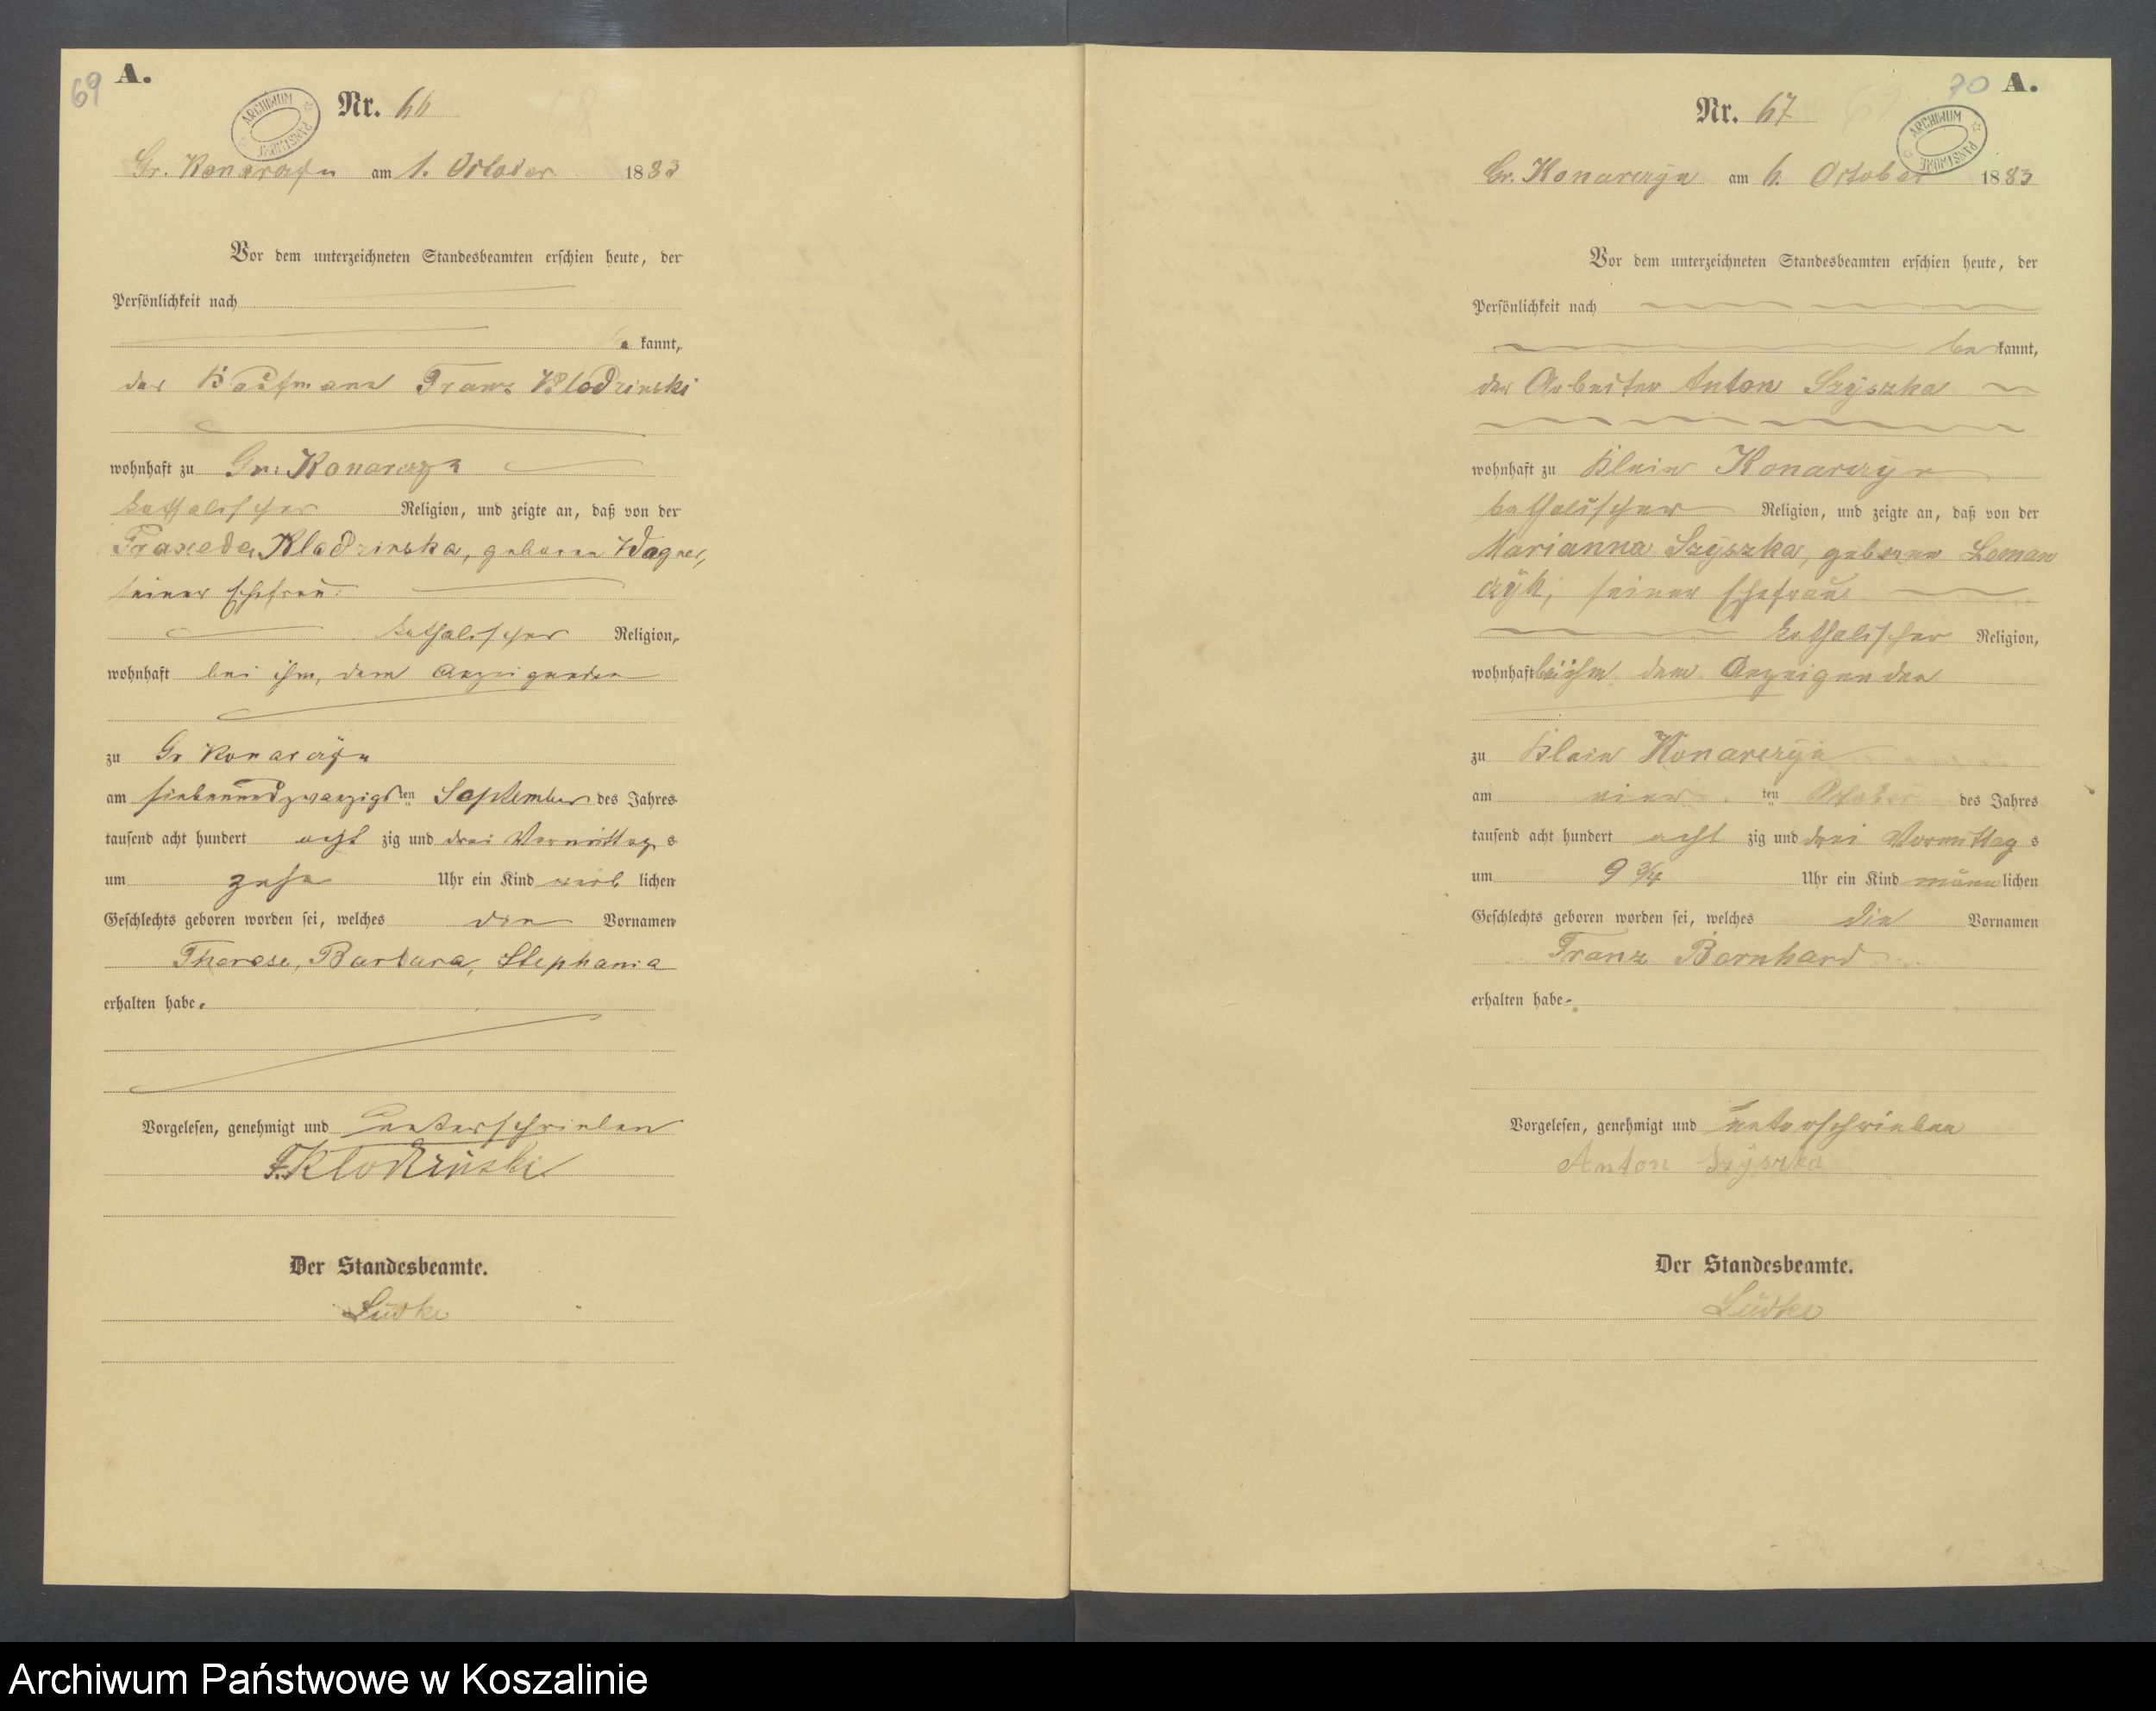 69
A.
ARCHIWUM PAŃSTWOWE
Nr. 66
Gr. Konarczyn am 1. October 1883
Vor dem unterzeichneten Standesbeamten erschien heute, der
Persönlichkeit nach
be kannt,
der Kaufmann Franz Klodzinski
wohnhaft zu Gr. Konarczyn
katholischer Religion, und zeigte an, daß von der
Praxeda Klodzinska, geboren Wagner,
seiner Ehefrau
katholischer Religion,
wohnhaft bei ihm, dem Anzeigenden
zu Gr Konarczyn
am siebenundzwanzigsten September des Jahres
tausend acht hundert acht zig und drei Vormittags
um zehn Uhr ein Kind weiblichen
Geschlechts geboren worden sei, welches die Vornamen
Therese, Barbara, Stephania
erhalten habe.
Vorgelesen, genehmigt und unterschrieben
F. Klodzinski
Der Standesbeamte.
Lüdke
70
A.
ARCHIWUM PAŃSTWOWE
Nr. 67
Gr. Konarczyn am 6. October 1883
Vor dem unterzeichneten Standesbeamten erschien heute, der
Persönlichkeit nach
be kannt,
der Arbeiter Anton Szyszka
wohnhaft zu Klein Konarczyn
katholischer Religion, und zeigte an, daß von der
Marianna Szyszka, geboren Loman
czyk, seiner Ehefrau
katholischer Religion,
wohnhaft bei ihm dem Anzeigenden
zu Klein Konarczyn
am vier ten October des Jahres
tausend acht hundert acht zig und drei Vormittags
um 9 3/4 Uhr ein Kind männlichen
Geschlechts geboren worden sei, welches die Vornamen
Franz Bernhard
erhalten habe.
Vorgelesen, genehmigt und unterschrieben
Anton Szyszka
Der Standesbeamte.
Lüdke
Archiwum Państwowe w Koszalinie